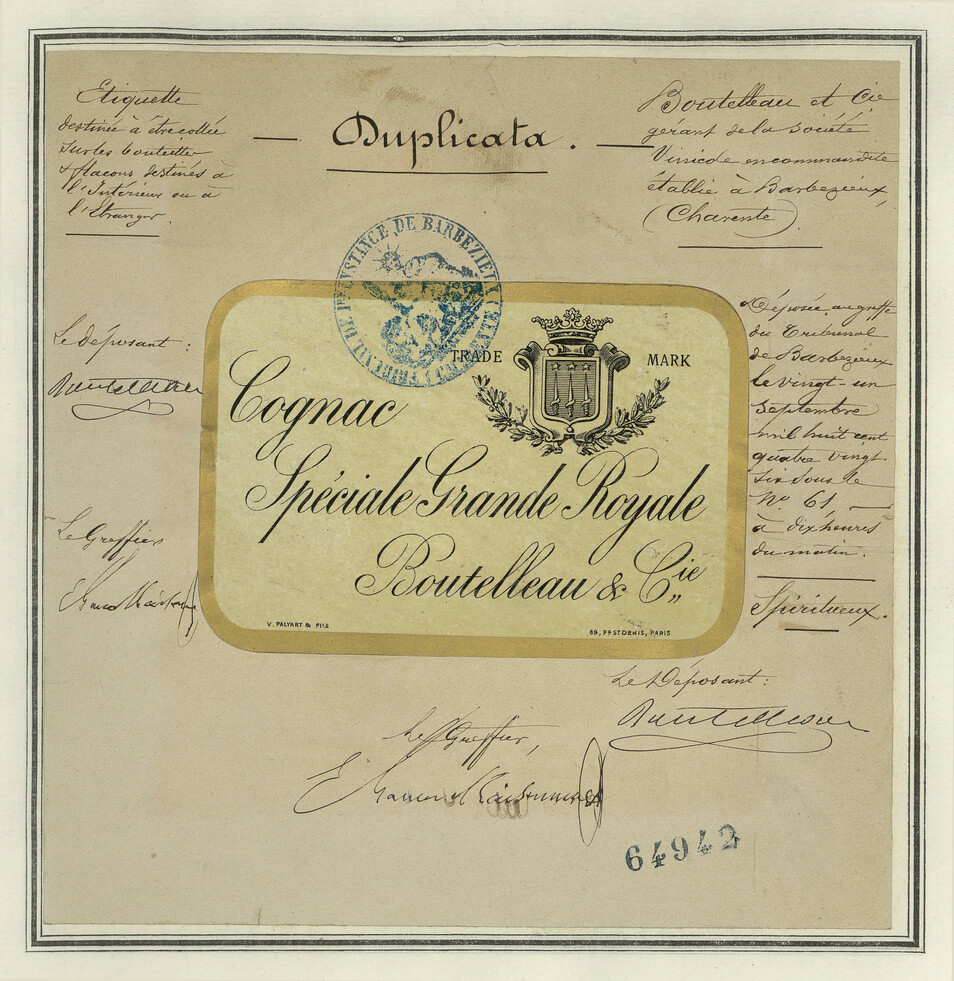 Etiquette
destinée à être collée
sur les bouteilles
& flacons destinés à
l'Intérieur ou à
l'Etranger.
— Duplicata. —
Boutelleau et Cie
gérant de la Société
Vinicole en commandite
établie à Barbezieux,
(Charente).
TRIBUNAL DE 1ERE INSTANCE DE BARBEZIEUX (CHARENTE)
Le Déposant :
Boutelleau
Le Greffier
TRADE MARK
Cognac
Spéciale Grande Royale
Boutelleau & Cie
V. PALYART & FILS
89, FG ST DENIS, PARIS
Déposée au greffe
du Tribunal
de Barbezieux
le vingt-un
Septembre
mil huit cent
quatre vingt
six sous le
No 61 —
à dix heures
du matin.
Spiritueux.
Le Déposant :
Boutelleau
Le Greffier,
64942